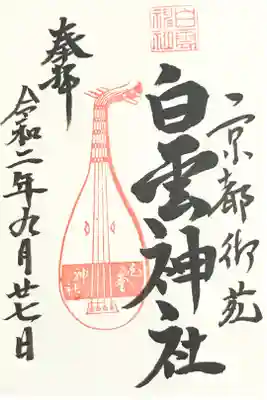 京都御苑
白雲神社
白雲
神社
白雲
神社
奉拝
令和二年九月廿七日